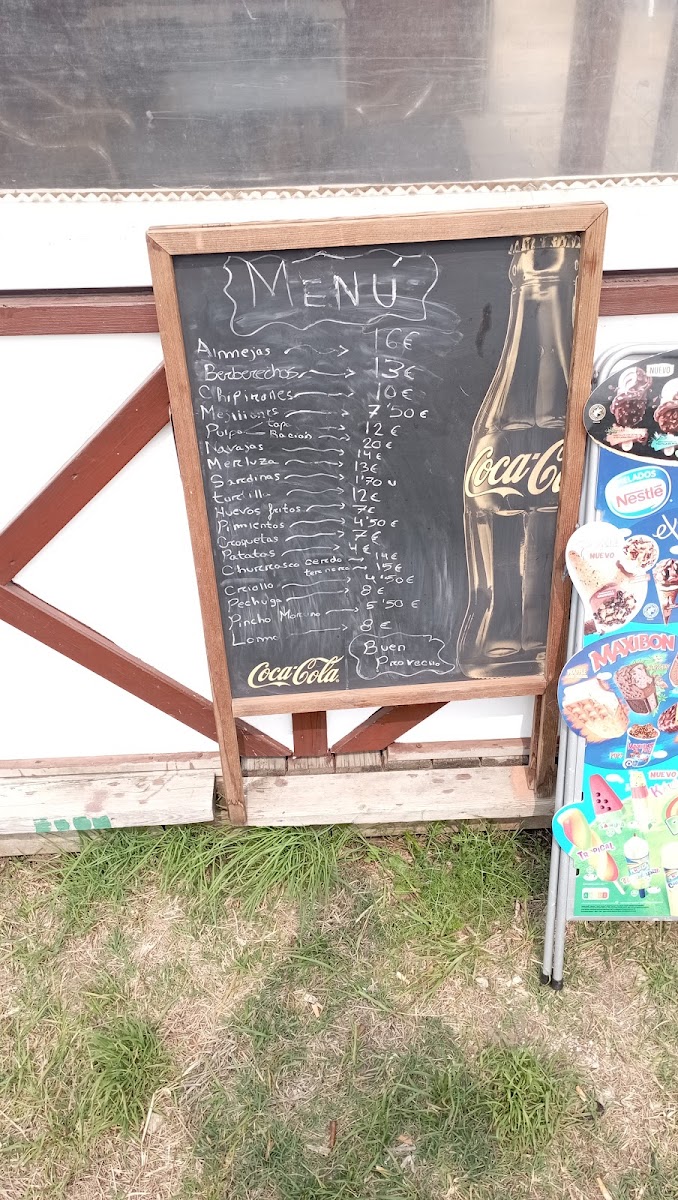 MENÚ
Almejas 16€
Berberechos 13€
Chipirones 10€
Mejillones 7'50€
Pulpo tapa 12€
Ración 20€
Navajas 14€
Merluza 13€
Sardinas 1'70 u
tortilla 12€
Huevos fritos 7€
Pimientos 4'50€
Croquetas 7€
Patatas 4€
Churrasco cerdo 14€
ternera 15€
Criollo 4'50€
Pechuga 8€
Pincho Moruno 5'50€
Lomo 8€
Buen
Provecho
Coca-Cola
Coca-C
NUEVO
HELADOS
Nestlé
NUEVO
MAXIBON
NUEVO
TROPICAL